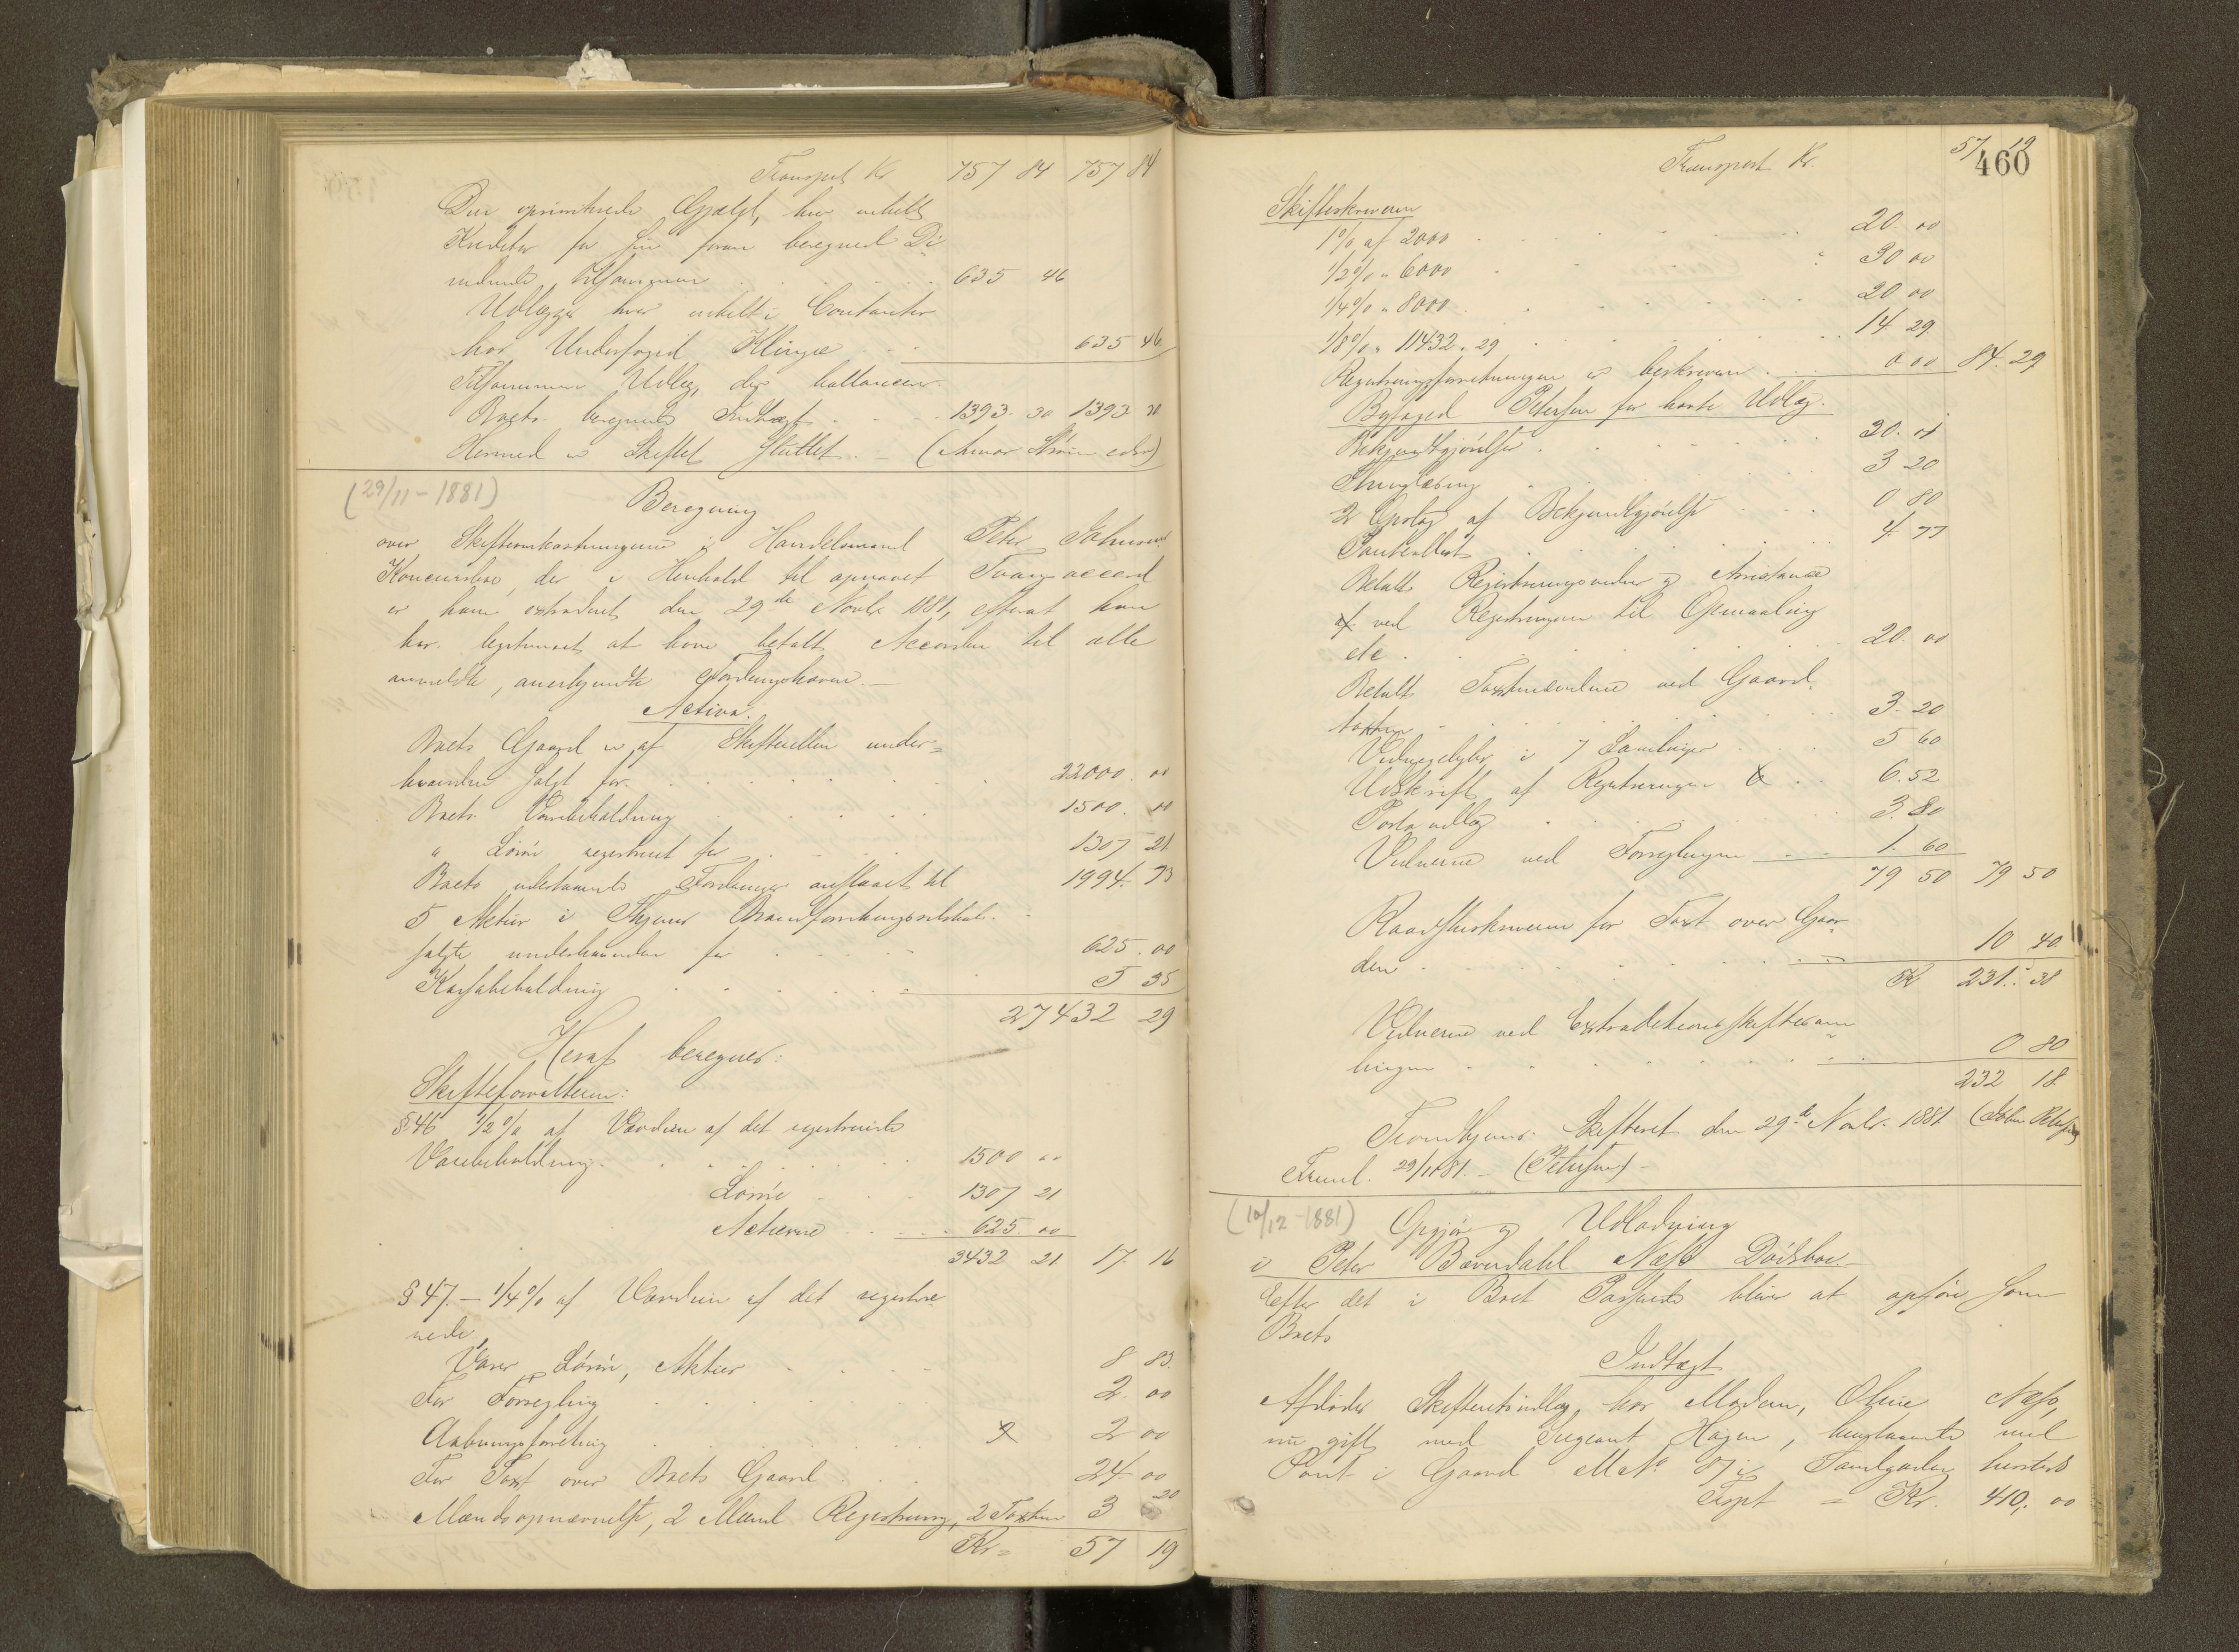 Transport Kr 757 84 757 84
Den uprioriterede Gjæld, hver enkelt
Kreditor for sin foran beregnede Di-
vidende, tilsammen 635 46
Udlægges hver enkelt i Contanter
hos Underfoged Klingse 635 46
Tilsammen Udlæg, der ballancerer
Boets beregnede Indtægt 1393. 30 1393 30
Hermed er Skiftet sluttet. –
(29/11 - 1881)
Beregning
over Skifteomkostningerne i Handelsmand Peter Johnsens
Konkursbo, der i Henhold til opnaaet Tvangsaccord
er ham extraderet den 29de Novbr 1881, efterat han
har legitimeret at have betalt Accorden til alle
anmeldte, anerkjendte Fordringshavere. –
Activa.
Boets Gaard er af Skifteretten under-
haanden solgt for 22000. 00
Boets Varebeholdning 1500. 00
" Løsøre registreret for 1307 21
Boets udestaaende Fordringer anslaaet til 1994. 73
5 Aktier i Thjems Brandforsikringsselskab
solgte underhaanden for 625. 00
Kassabeholdning 5 35
27432 29
Heraf beregnes:
Skifteforvalteren:
§ 46 1/2 % af Værdien af det registrerede
Varebeholdning 1500 00
Løsøre 1307 21
Actierne 625. 00
3432 21 17. 16
§ 47. – 1/4 % af Værdien af det registre-
rede,
Varer, Løsøre, Aktier 8 83.
For Forsegling 2. 00
Aabningsforretning 2 00
For Taxt over Boets Gaard 24. 00
Mandsopnævnelse, 2 Mænd Registrering, 2 Taxten 3 20
Kr = 57 19
460
Transport Kr. 57 19
Skifteskriveren
1 % af 2000 20. 00
1/2 % " 6000 30 00
1/4 % " 8000 20 00
1/8 % " 11432. 29 14 29.
Registreringsforretningen er beskreven 0 00 84. 29
Byfoged Petersen for havte Udlæg.
Bekjendtgjørelser 30. 01
Thinglæsning 3 20
2 Opslag af Bekjendtgjørelse 0 80
Panteattest 4 77
Betalt Registreringsvidner og Assistance
ved Registreringen til Opmaaling
etc. 20. 00
Betalt Taxtmændene ved Gaard-
taxten 3. 20
Vidnegebyhr i 7 Samlinger 5 60
Udskrift af Registreringen 6. 52
Porto udlæg 3. 80
Vidnerne ved Forseglingen 1. 60
79 50 79 50
Raadstueskriveren for Taxt over Gaar-
den 10 40.
Kr 231. 38
Vidnerne ved Extraditionsskiftesam-
lingen 0 80
232 18.
Trondhjems Skifteret den 29de Novbr. 1881
Freml. 29/11 81. – (Petersen) –
(10/12 - 1881)
Opgjør og Udlodning
i Peter Bæverdahl Næss Dødsboe. –
Efter det i Boet Passerede bliver at opføre som
Boets
Indtægt
Afdødes Skifteretsindlæg, hos Moderen, Oline Næss,
nu gift med Sergeant Hagen, henstaaende med
Pant i Gaard Mat. i Sandgaden hersteds
Trspt = Kr. 410. 00